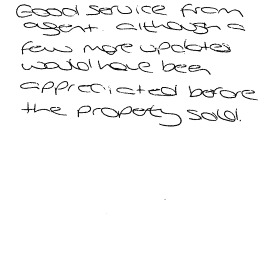 Good service from
agent. although a
few more updates
would have been
appreciated before
the property sold.